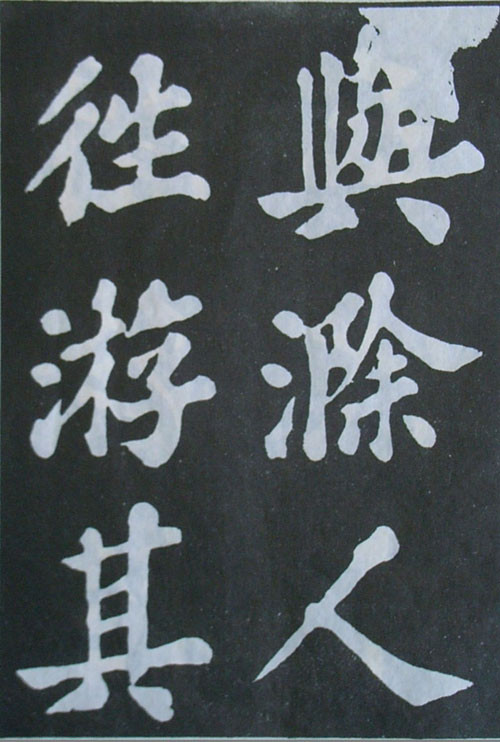 與滁人
徃游其